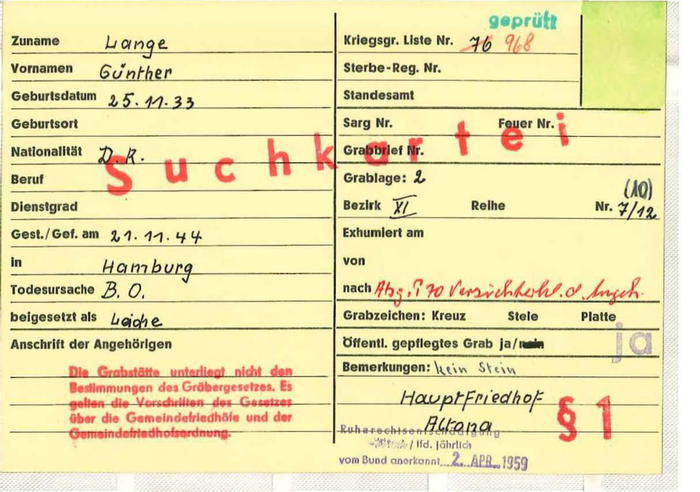 geprüft
Zuname Lange
Vornamen Günther
Geburtsdatum 25.11.33
Geburtsort
Nationalität D.R.
Beruf
Dienstgrad
Gest./Gef. am 21.11.44
in Hamburg
Todesursache B.O.
beigesetzt als Leiche
Anschrift der Angehörigen
Die Grabstätte unterliegt nicht den
Bestimmungen des Gräbergesetzes. Es
gelten die Vorschriften des Gesetzes
über die Gemeindefriedhöfe und der
Gemeindefriedhofsordnung.
Suchkartei
Kriegsgr. Liste Nr. 76 968
Sterbe-Reg. Nr.
Standesamt
Sarg Nr. Feuer Nr.
Grabbrief Nr.
Grablage: 2
(10)
Bezirk XI Reihe Nr. 7/12
Exhumiert am
von
nach Abg. § 70 Verzichterkl. d. Angeh.
Grabzeichen: Kreuz Stele Platte
Öffentl. gepflegtes Grab ja/nein ja
Bemerkungen: kein Stein
Hauptfriedhof
Altona
§ 1
Ruherechtsentschädigung
/ lfd. jährlich
vom Bund anerkannt 2. APR. 1959